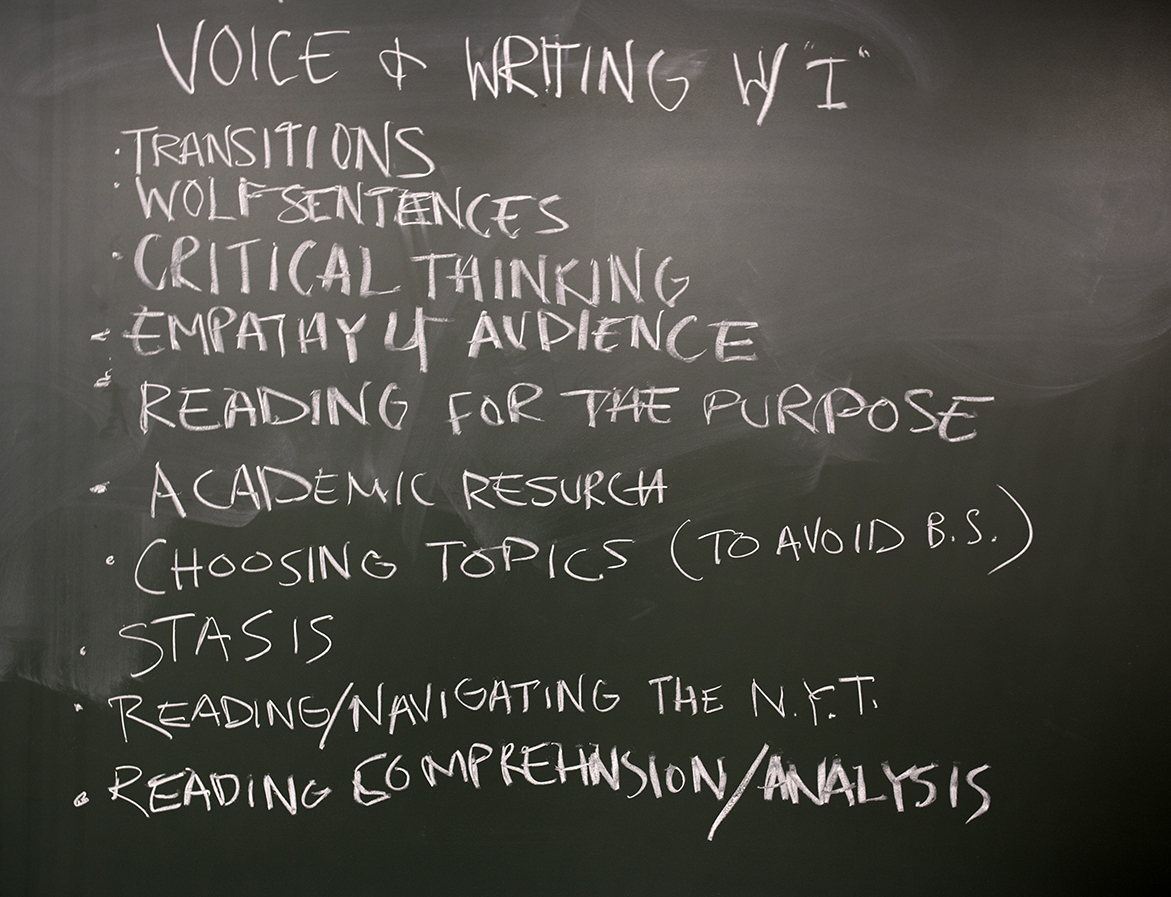 VOICE & WRITING W/ "I"
· TRANSITIONS
· WOLF SENTENCES
· CRITICAL THINKING
- EMPATHY & AUDIENCE
· READING FOR THE PURPOSE
- ACADEMIC RESURCH
· CHOOSING TOPICS (TO AVOID B.S.)
· STASIS
· READING/NAVIGATING THE N.F.T.
· READING COMPREHNSION/ANALYSIS